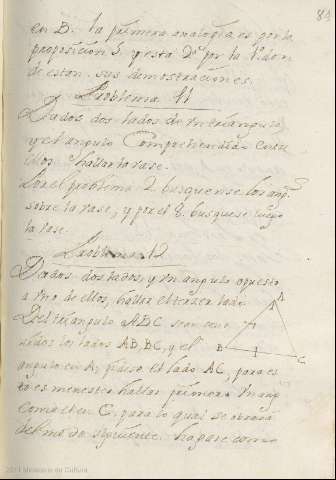 84
en B. la primera analogia es por la
proposicion 5. y esta 2ª por la 1. don
de estan sus demostraciones.
Problema 11
Dados dos lados de un triangulo
y el angulo Comprehendido entre
ellos hallar la vase.
Por el problema 2 busquense los angs
sobre la vase, y por el 8. busquese luego
la vase.
Problema 12
Dados dos lados, y un angulo opuesto
a uno de ellos, hallar el tercer lado
Del triangulo ABC sean cono
cidos los lados AB, BC, y el
angulo en A, pidese el lado AC, para es
to es menester hallar primero un ang
como el en C, para lo qual se obrara
del modo siguiente. hagase como
A
B
C
2011 Ministerio de Cultura